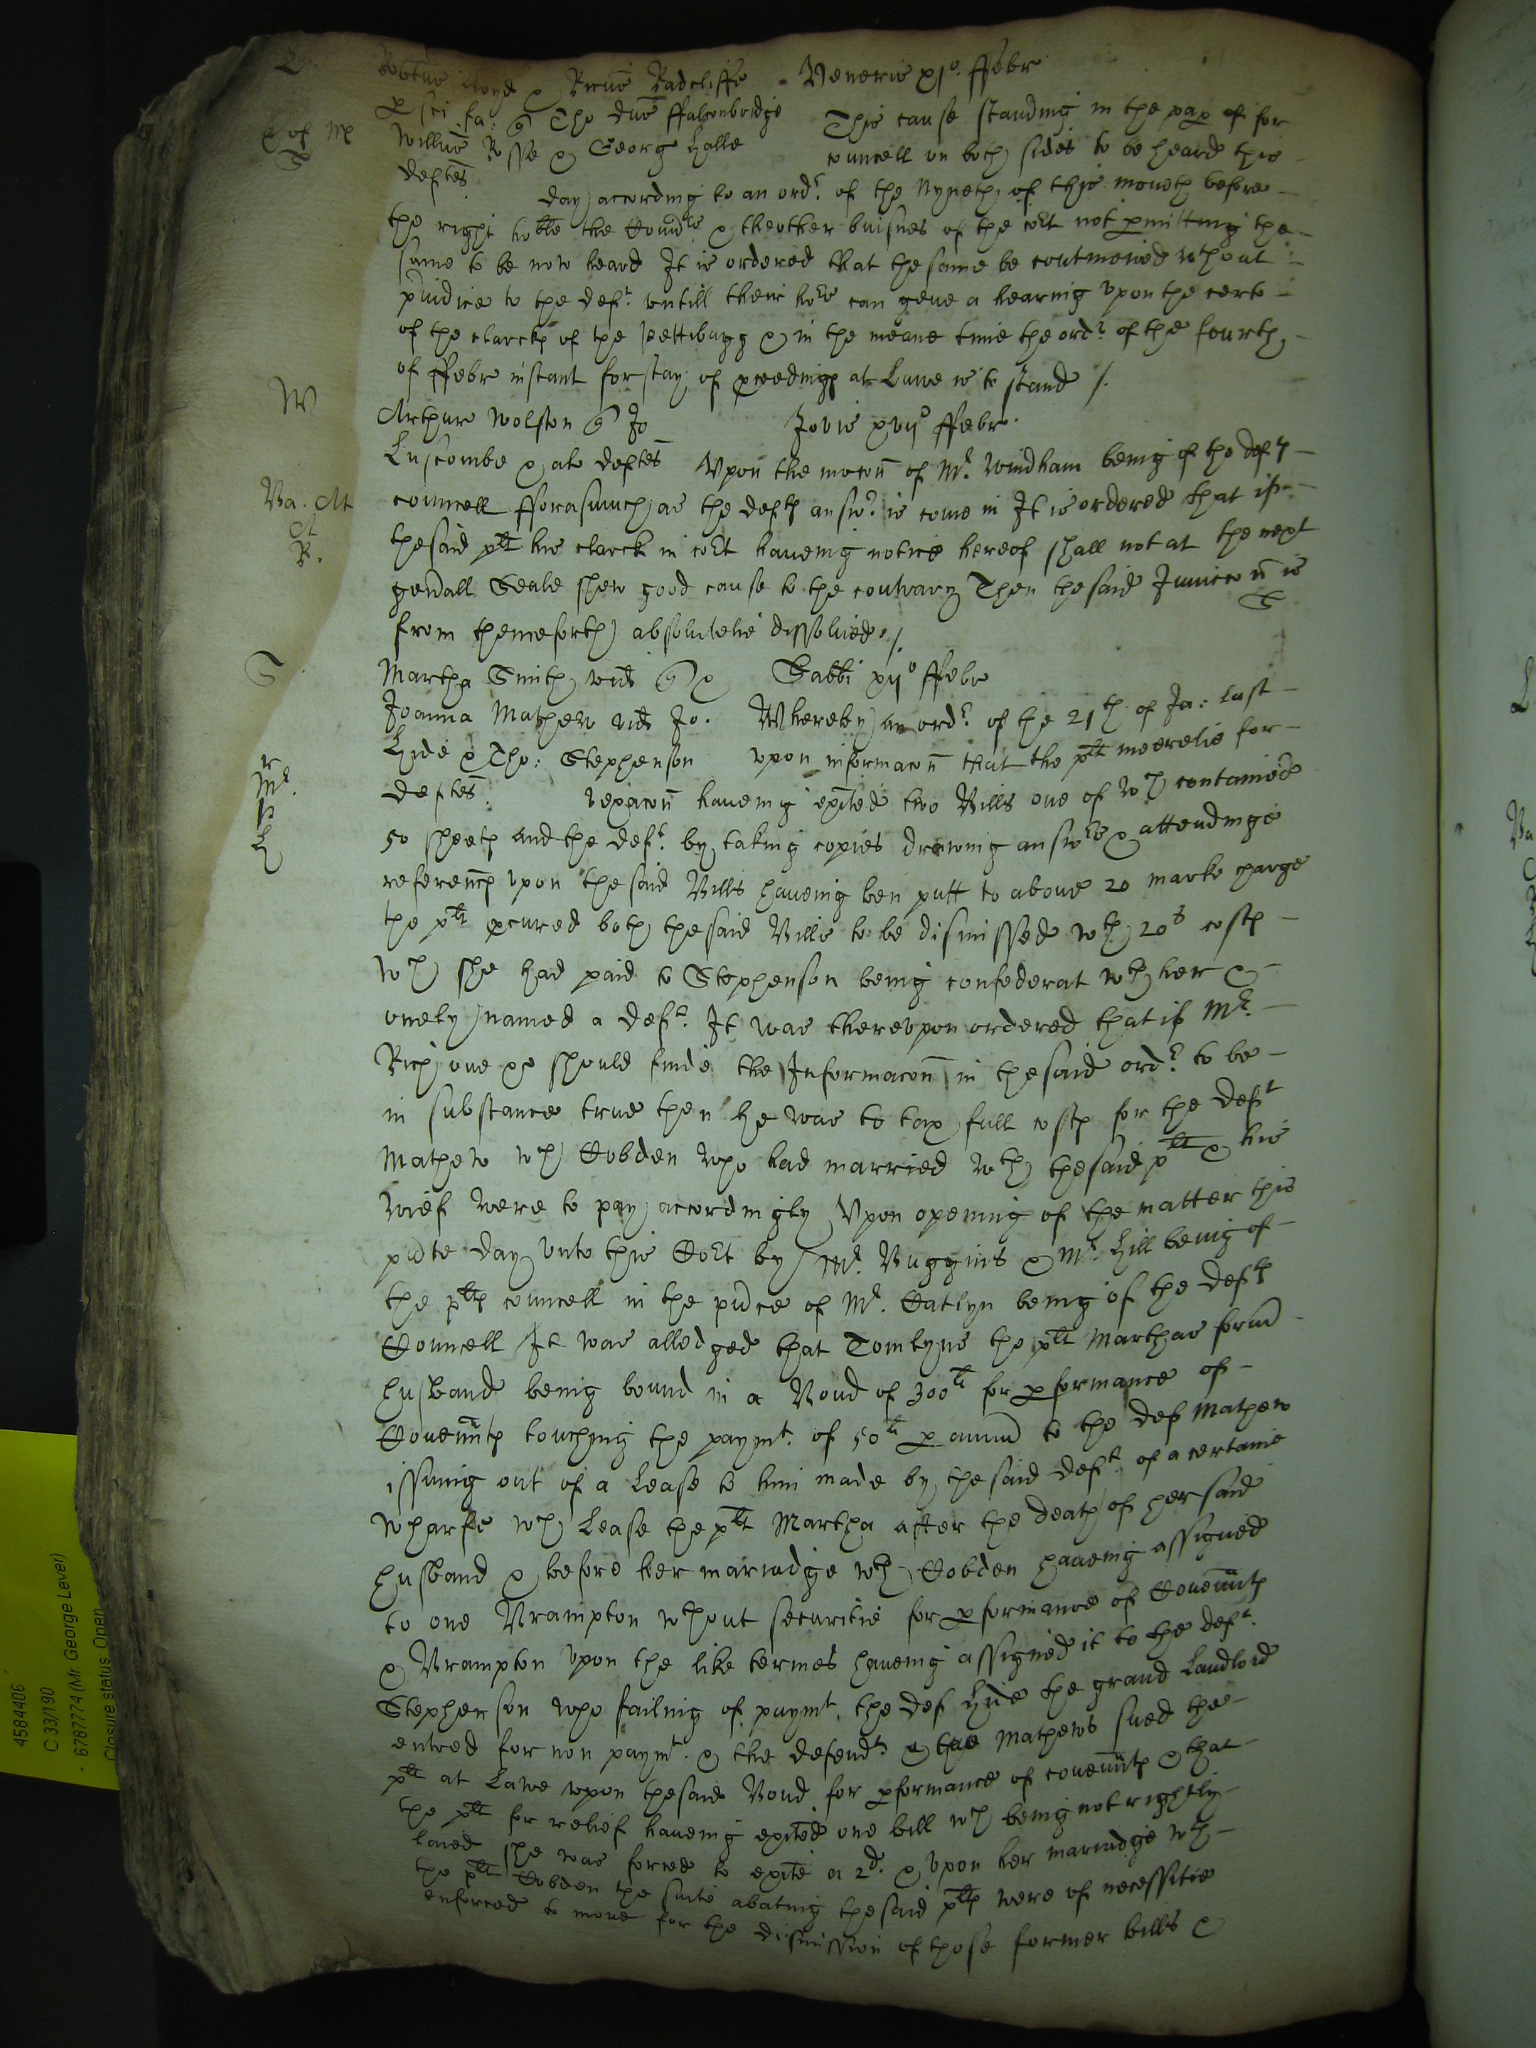 Robtus lloyd & Ricus Radcliffe Veneris xjo ffebr
p sci fa: Tho dns ffalconbridge This cause standing in the pap of for
Willus Rosse & Georg Halle councell on both sides to be heard this
deftes day according to an ordr of the Nyneth of this moneth before
the right hoble the & theother buisnes of the cort not pmitting the
same to be now heard It is ordered that the same be contineued wthout
piudice to the deft untill their hors can geve a hearing upon the certe
of the clarck of the pettibagg & in the meane time the ordr of the fourth
of ffebr instant for stay of pceedings at Lawe is to stand /.
W
Arthure Wolston Jo Jovis xvijo ffebr
Luscombe & al deftes Upon the mocon of Mr Windham being of the deftes
Ba. At
councell fforasmuch as the deftes answr is come in It is ordered that if
thesaid plt his clarck in cort haveing notice hereof shall not at the next
R.
genall Seale shew good cause to the contrary Then thesaid Iniuccon is
from thenceforth absolutelie dissolved /.
S
Martha Smith wid & Sabbi xijo ffebr
Joanna Mathew vid Jo. Whereby an ordr of the 21th of Ja: last
Hide & Tho: Stephenson upon informacon that the plt meerelie for
deftes. vexacon haveing exited two Bills one of wch contained
Mr.
50 sheets and the deft by taking copies drawing answrs & attendinge
references upon thesaid Bills haveing ben putt to above 20 marks charge
the plt pcured both thesaid Bills to be dismissed wth 20s costs
wch she had paid to Stephenson being confederat wth her &
onely named a deft. It was thereupon ordered that if Mr.
Rich one &c should finde the Informacon in thesaid ordr to be
in substance true then he was to tax full costs for the deft
Mathew wch Cobden who had married wth thesaid plt & his
wief were to pay accordingly Upon opening of the matter this
pnte day unto this Cort by Mr. Buggins & Mr. Hill being of
the plts councell in the pnce of Mr. Catlyn being of the defts
Councell It was alledged that Tomlyns the plt Marthas formr
husband being bound in a Bond of 300li for pformance of
Covennts touching the paymt. of 50li p annu to the def Mathew
issuing out of a Lease to him made by thesaid deft. of a certaine
wharfe wch Lease the plt Martha after the death of her said
husband & before her mariadge wth Cobden haveing assigned
to one Brampton wthout securitie for pformance of Covennts
& Brampton upon the like termes haveing assigned it to the deft.
Stephenson who failing of paymt. the def Hide the grand Landlord
entred for non paymt. & the defendt. Mathews sued the
plt at Lawe upon thesaid Bond for pformance of covennts & that
the plt for relief haveing exited one bill wch being not rightly
laied she was forced to exite a 2d. & upon her mariadge wth
the plt Cobden the suite abating thesaid plts were of necessitie
enforced to move for the dismission of those former bills &
4584406
C 33/190
6787774 (Mr. George Lever)
Closure status: Open